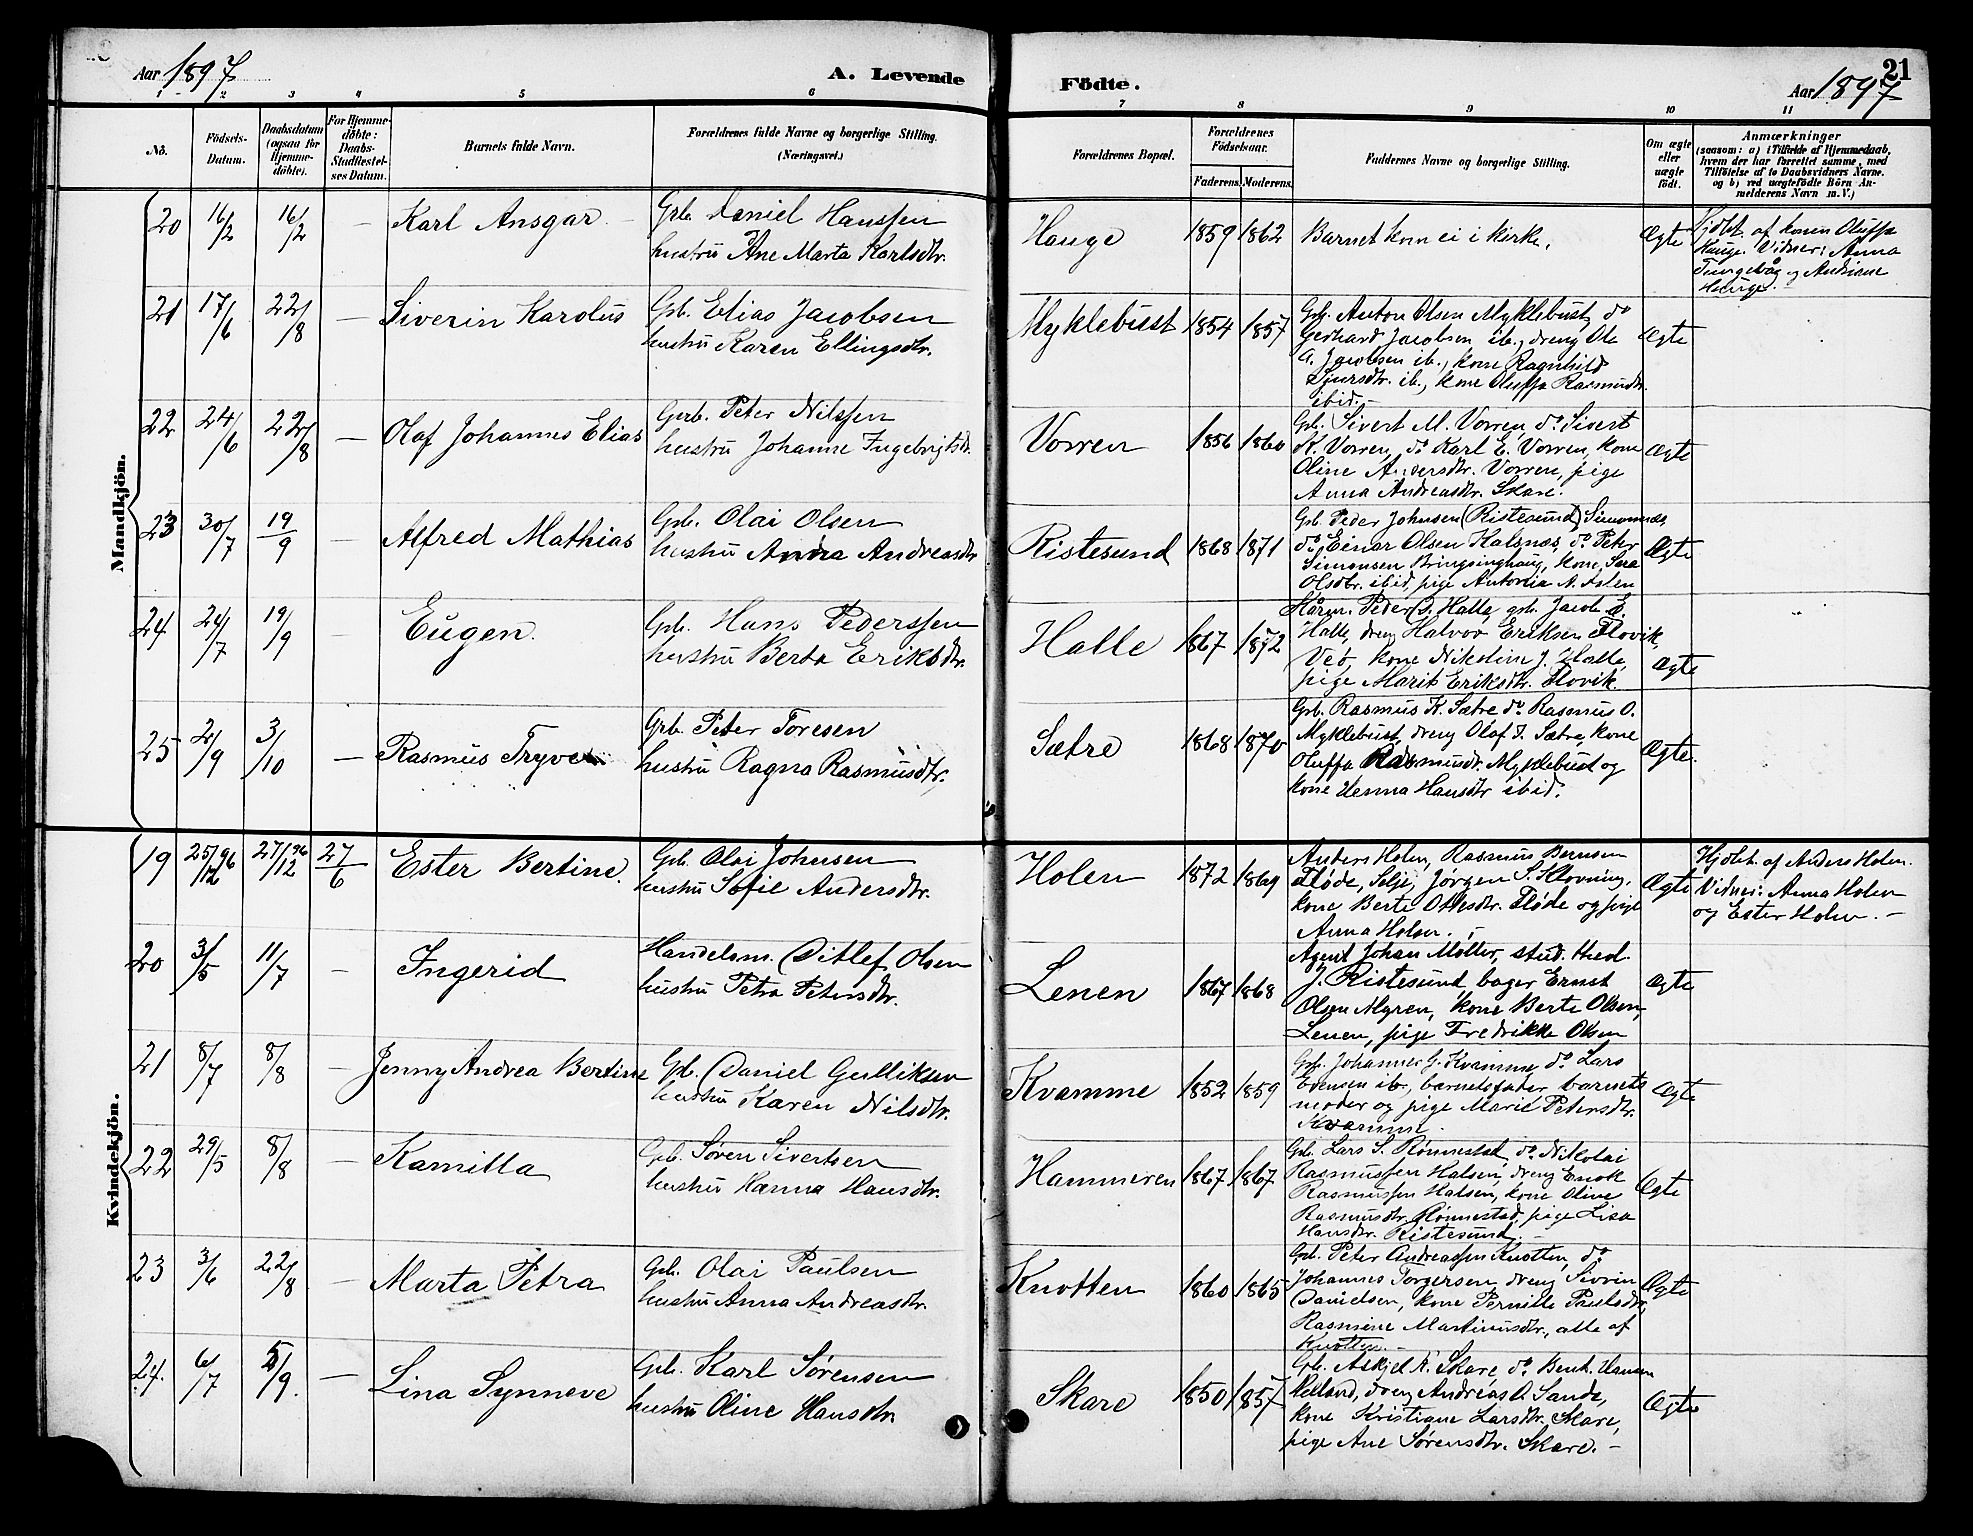 Aar 1897
A. Levende
Födte.
Aar 1897
21
1 2 3 4 5 6 7 8 9 10 11
No.
Födsels-
Datum.
Daabsdatum
(ogsaa for
Hjemme-
döbte).
For Hjemme-
döbte:
Daabs-
Stadfæstel-
ses Datum.
Barnets fulde Navn.
Forældrenes fulde Navne og borgerlige Stilling.
(Næringsvei.)
Forældrenes Bopæl.
Forældrenes
Födselsaar.
Faderens. Moderens.
Faddernes Navne og borgerlige Stilling.
Om ægte
eller
uægte
födt.
Anmærkninger
(saasom: a) i Tilfælde af Hjemmedaab,
hvem der har forrettet samme, med
Tilföielse af to Daabsvidners Navne.
og b) ved uægtefödte Börn An-
melderens Navn m. V.)
Mandkjön.
20 16/2 16/2 — Karl Ansgar
Grb. Daniel Hanssen
hustru Ane Marta Karlsdtr.
Hauge 1859 1862 Barnet kom ei i kirke. Ægte
Hjdbt. af konen Oluffa
Hauge. Vidner: Anna
Tungevåg og Andriane
Hauge.
21 17/6 22/8 — Siverin Karolus
Grb. Elias Jacobsen
hustru Karen Ellingsdtr.
Myklebust 1854 1857
Grb. Anton Olsen Myklebust, do
Gerhard Jacobsen ib., dreng Ole
A. Jacobsen ib., kone Ragnhild
Sjursdtr. ib., kone Oluffa Rasmusdtr.
ibid. —
Ægte
22 24/6 22/8 — Olaf Johannes Elias
Grb. Peter Nilssen
hustru Johanne Ingebrigtsdr.
Vorren 1856 1860
Grb. Sivert M. Vorren, do Sivert
K. Vorren, do Karl E. Vorren, kone
Oline Andersdtr. Vorren, pige
Anna Andreasdtr. Skare.
Ægte
23 30/7 19/9 — Alfred Mathias
Grb. Olai Olsen
hustru Andrea Andreasdtr
Ristesund 1868 1871
Grb. Peder Johnsen (Ristesund) Simonnæs,
do Einar Olsen Halsnæs, do Peter
Simonsen Bringsinghaug, kone Sara
Olsdtr. ibid, pige Antonia A. Aslen
Ægte
24 24/7 19/9 — Eugen.
Grb. Hans Pederssen
hustru Berta Eriksdtr.
Halle 1867 1872
Kårm. Peder J. Halle, grb. Jacob E.
Halle, dreng Halvor Eriksen Flovik,
Veø, kone Nikoline J. Halle,
pige Marit Eriksdtr. Flovik.
Ægte
25 2/9 3/10 — Rasmus Tryve
Grb. Peter Toresen
hustru Ragna Rasmusdtr.
Sætre 1868 1870
Grb. Rasmus K. Sætre do Rasmus O.
Myklebust, dreng Olaf T. Sætre, kone
Oluffa Rasmusdr. Myklebust og
kone Hanna Hansdtr ibid.
Ægte.
Kvindekjön.
19 25/12 96 27/12 96 27/6 Ester Bertine.
Grb. Olai Johnsen
hustru Sofie Andersdtr.
Holen 1872 1869
Anders Holen, Rasmus Bernsen
Fløde, Selje, Jørgen S. Klovning,
kone Berte Ottesdtr. Fløde og pige
Anna Holen. —
Ægte
Hjdbt. af Anders Holen.
Vidner: Anna Holen
og Ester Holen. —
20 3/5 11/7 — Ingerid
Handelsm. Ditlef Olsen
hustru Petra Petersdtr.
Lenen 1867 1868
Agent Johan Møller, stud. theol.
J. Ristesund, bager Ernst
Olsen Myren, kone Berte Olsen,
Lenen, pige Fredrikke Olsen
Ægte
21 8/7 8/8 — Jenny Andrea Bertine
Grb. Daniel Gulliksen
hustru Karen Nilsdtr.
Kvamme 1852 1859
Grb. Johannes G. Kvamme, do Lars
Evensen ib., barnets fader, barnets
moder og pige Marie Petersdtr.
Kvamme.
Ægte
22 29/5 8/8 — Kamilla
Grb. Søren Sivertsen
hustru Hanna Hansdtr.
Hammeren 1867 1867
Grb. Lars S. Rønnestad, do Nikolai
Rasmussen Halsen, dreng Enok
Rasmussen Halsen, kone Oline
Rasmusdtr. Rønnestad, pige Lisa
Hansdtr. Ristesund. —
Ægte
23 3/6 22/8 — Marta Petra
Grb. Olai Paulsen
hustru Anna Andreasdtr.
Knotten 1860 1865
Grb. Peter Andreassen Knotten, do
Johannes Torgersen, dreng Sivrin
Danielsen, kone Pernille Paulsdtr,
Rasmine Martinusdtr., alle af
Knotten. —
Ægte
24. 6/7 5/9. — Lina Synneve
Grb. Karl Sørensen
hustru Oline Hansdtr
Skare 1850 1857
Grb. Askjel K. Skare, do Bent. Hansen
Helland, dreng Andreas A. Sande,
kone Kristiane Larsdtr. Skare,
pige Ane Sørensdtr. Skare. —
Ægte